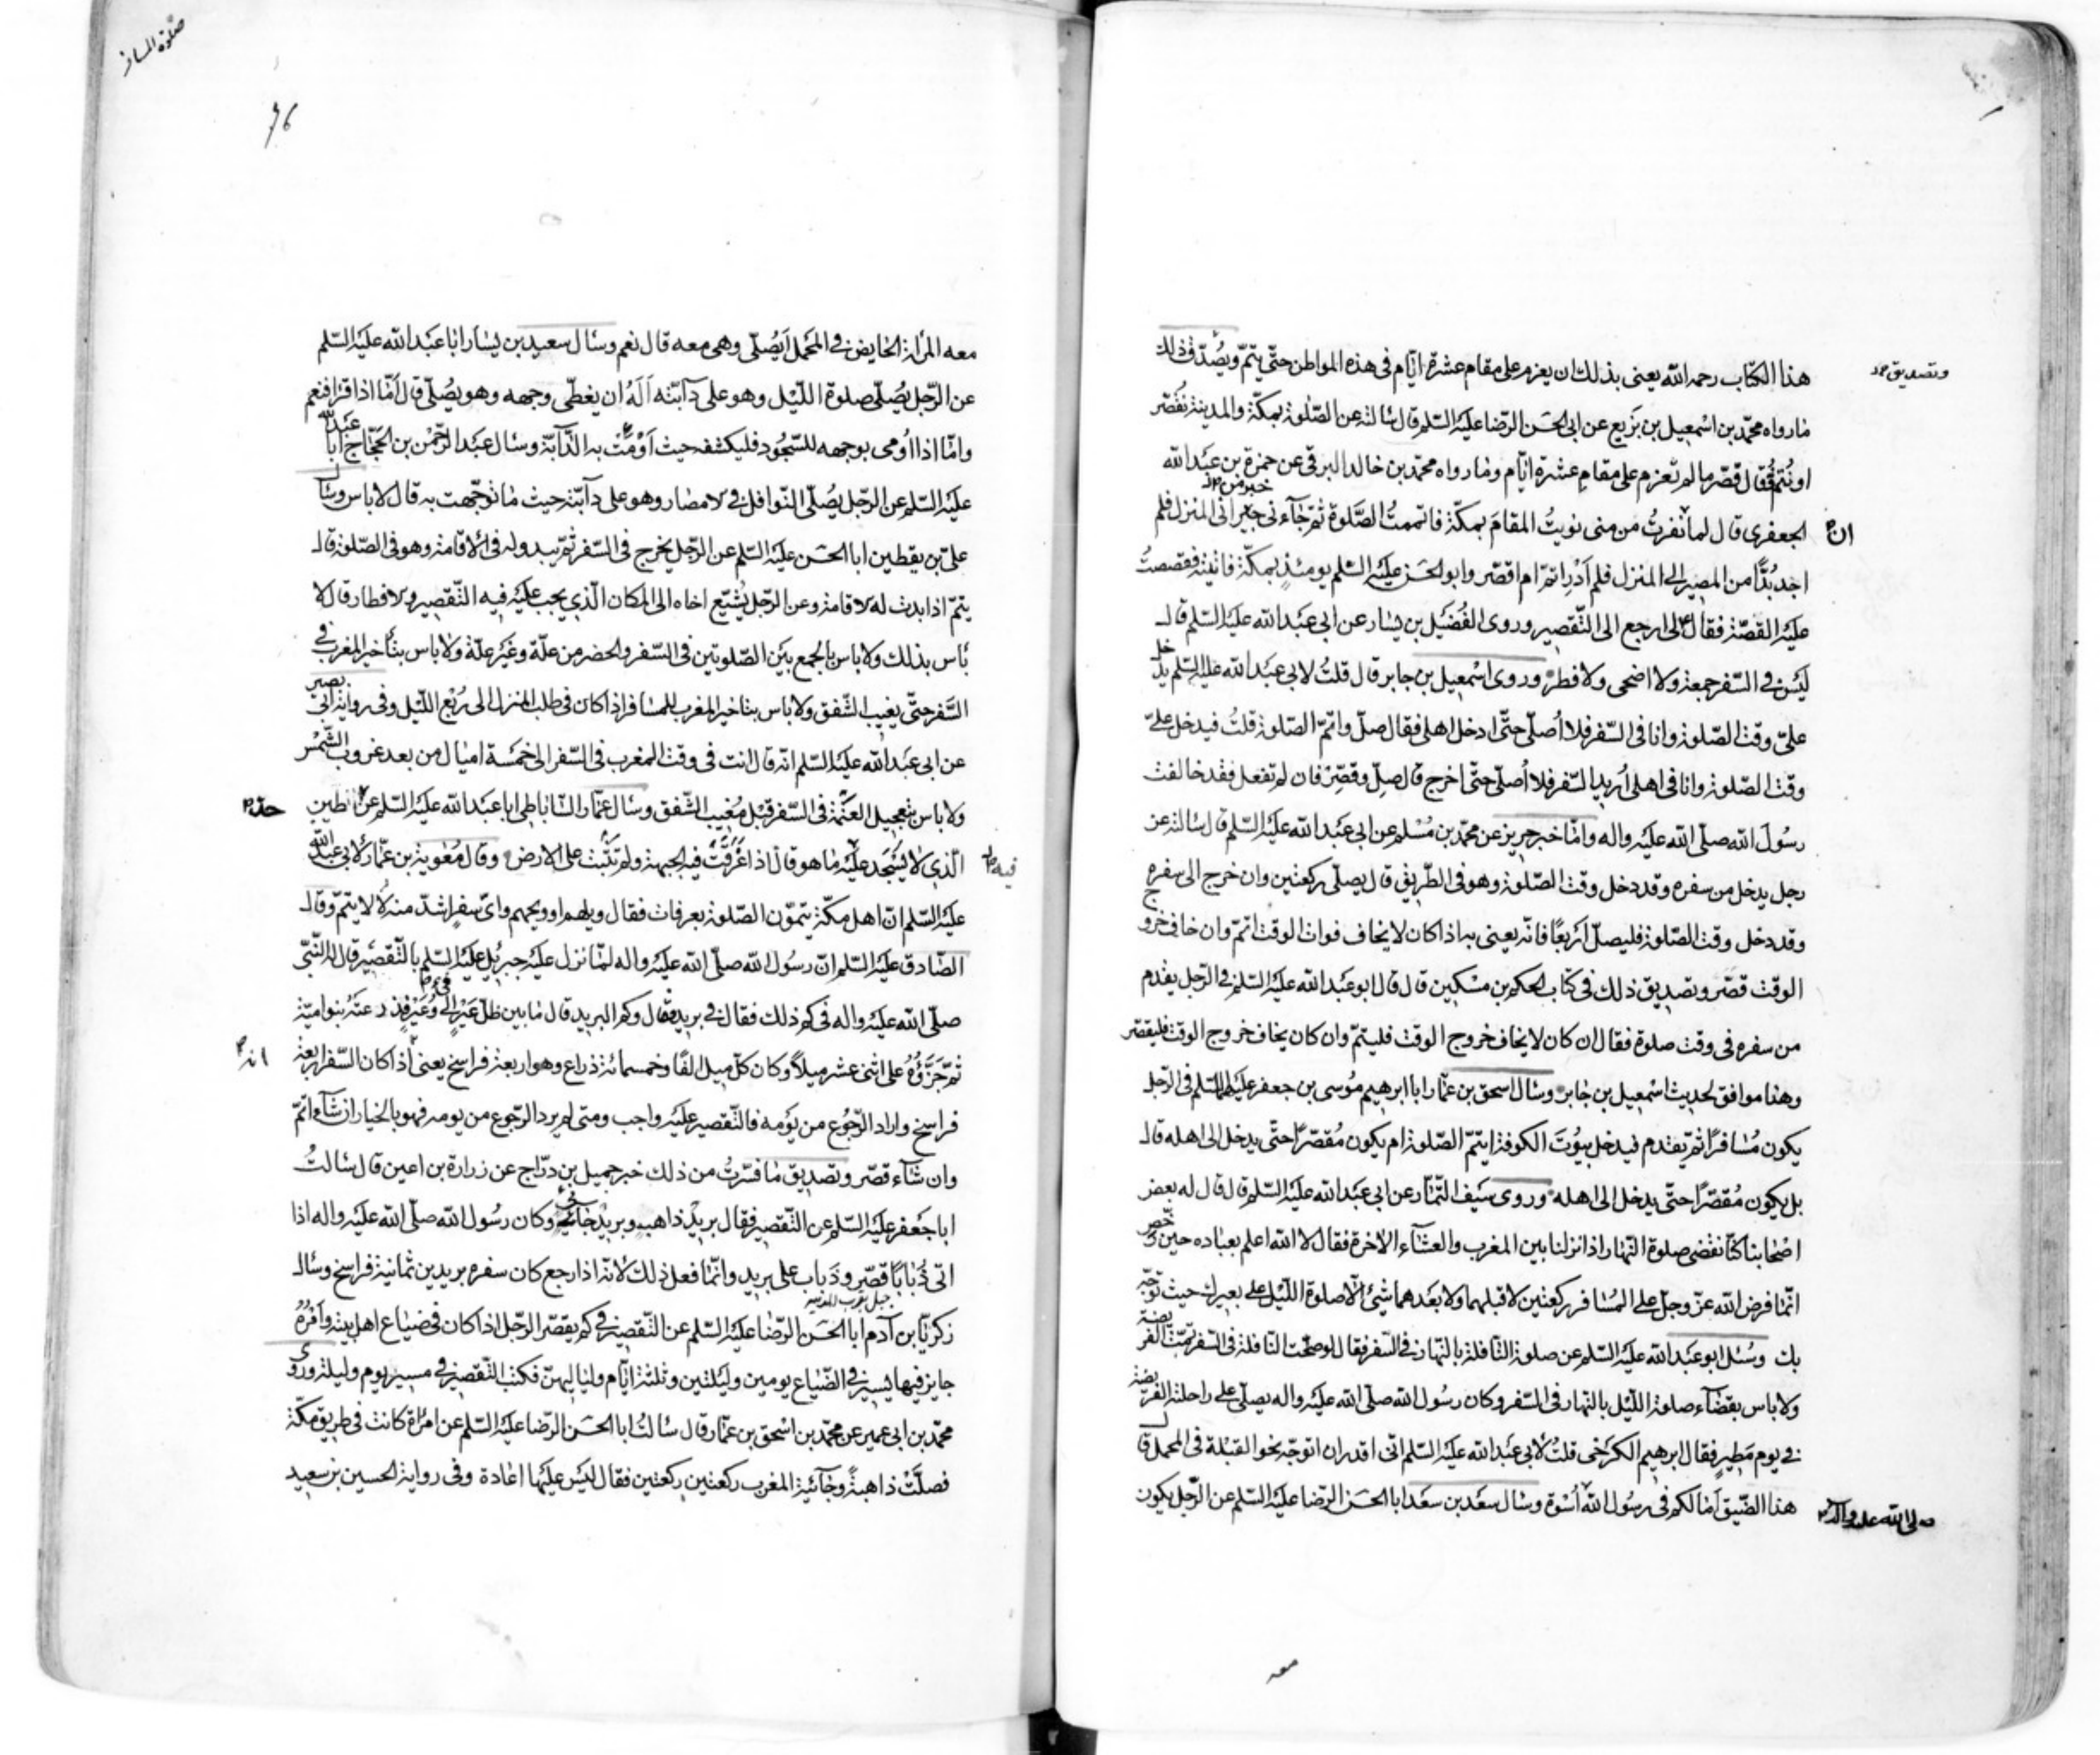 هذا الكتاب رحمه الله يعنى بذلك ان يعزم على مقام عشرة ايّام فى هذه المواطن حتّى يتمّ ويُصدّق ذلك
وتصديق
مارواه محمّد بن اسْمعيل بن بَزيع عن ابى الحَسَن الرّضا عليْه السّلم قال سَالته عن الصّلوة بمكّة والمدينة نُقصّر
او نُتمّ فقال قصّر ما لم تَعزم على مقام عشرة ايّام ومارواه محمّد بن خالد البرقى عن حمزة بن عبَد الله
الجعفرى قال لما نفرتُ من منى نويتُ المقامَ بمكّة فاتممتُ الصّلوة ثمّ جَآءنى خبر من المنزل فلم
ان
اجد بُدًّا من المصير الى المنزل فلم اَدْر اتمّ ام اقصّر وابو الحَسَن عليْه السّلم يومئذٍ بمكّة فاتيته فقصصتُ
عليْه القصّة فقال لى ارجع الى التّقصير وروى الفُضَيْل بن يسَار عن ابى عبَد الله عليْه السّلم قال
ليْسَ فى السّفر جمعة ولا اضحى ولا فطر وروى اسْمعيل بن جابر قال قلتُ لابى عبَد الله عليْه السّلم يدخل
علىّ وقت الصّلوة وانا فى السّفر فلا اُصلّى حتّى ادخل اهلى فقال صلّ واتمّ الصّلوة قلتُ فيدخل علىّ
وقت الصّلوة وانا فى اهلى اُريد السّفر فلا اُصلّى حتّى اخرج قال صلّ وقصّر فان لم تفعل فقد خالفت
رسُولَ الله صلّى الله عليْه واله وامّا خبر حريز عن محمّد بن مُسْلم عن ابى عبَد الله عليْه السّلم قال سَالته عن
رجل يدخل من سفره وقد دخل وقت الصّلوة وهو فى الطّريق قال يصلّى ركعتين وان خرج الى سفره
وقد دخل وقت الصّلوة فليصلّ اَربعًا فانّه يعنى به اذا كان لا يخاف فوات الوقت اتمّ وان خاف خروج
الوقت قصّر وتصديق ذلك فى كتاب الحكم بن مسْكين قال قال ابو عبَد الله عليْه السّلم فى الرّجل يقدم
من سفره فى وقت صلوة فقال ان كان لا يخاف خروج الوقت فليتمّ وان كان يخاف خروج الوقت فليقصّر
وهذا موافق لحديث اسْمعيل بن جابر وسَال اسحق بن عمّار ابا ابرهيم مُوسى بن جعفر عليْهما السّلم فى الرّجل
يكون مُسَافرًا ثمّ يقدم فيدخل بيُوتَ الكوفة ايتمّ الصّلوة ام يكون مُقصّرًا حتّى يدخل الى اهله قال
بل يكون مُقصّرًا حتّى يدخل الى اهله وروى سَيف التّمّار عن ابى عبَد الله عليْه السّلم قال قال له بعض
اصْحابنا كنّا نقضى صلوة النّهار اذا نزلنا بين المغرب والعشَآء الاخرة فقال لا الله اعلم بعباده حين رخّص
انّما فرض الله عزّ وجلّ على المُسَافر ركعتين لا قبلهما ولا بَعدهما شئ الّا صلوة اللّيْل على بعيرك حيث توجّه
بك وسُئل ابو عبَد الله عليْه السّلم عن صلوة النّافلة بالنّهار فى السّفر فقال لو صلحَت النّافلة فى السّفر تمّت الفريضة
ولا باس بقضَآء صلوة اللّيْل بالنّهار فى السّفر وكان رسُول الله صلّى الله عليْه واله يصلّى على راحلته الفريضة
فى يوم مَطير فقال ابرهيم الكرخى قلتُ لابى عبَد الله عليْه السّلم انّى اقدر ان اتوجّه نحو القبْلة فى المحمل قال
هذا الضّيق اَمَا لكم فى رسُول الله اُسْوة وسَال سعَد بن سعَد ابا الحَسَن الرّضا عليْه السّلم عن الرّجل يكون
صلى الله عليه وآله
معه
صلوة المسافر
معه المراة الحايض فى المَحْمل اَيُصلّى وهى معه قال نعم وسَال سعيد بن يسَار ابا عبَد الله عليْه السّلم
عن الرّجل يُصلّى صلوة اللّيْل وهو على دآبّته اَلَهُ ان يغطّى وجهه وهو يُصلّى قال اَمّا اذا قرا فنعم
وامّا اذا اَومى بوجهه للسّجُود فليكشفه حيث اَوْمَتْ به الدّآبّة وسَال عبَد الرّحمْن بن الحجّاج ابا عبَد الله
عليْه السّلم عن الرّجل يُصلّى النّوافل فى الامصَار وهو على دآبّته حيث ما توجّهت به قال لا باس وسَال
علىّ بن يقطين ابا الحَسَن عليْه السّلم عن الرّجل يخرج فى السّفر ثمّ يبدو له فى الاقامة وهو فى الصّلوة قال
يتمّ اذا بدت له الاقامة وعن الرّجل يُشيّع اخاه الى المكان الّذى يجب عليْه فيه التّقصير والافطار قال لا
بَاس بذلك ولا باس بالجمع بيَن الصّلوتين فى السّفر والحضر من علّة وغَيْر علّة ولا باس بتَاخير المغرب فى
السّفر حتّى يغيب الشّفق ولا باس بتاخير المغرب للمسَافر اذا كان فى طلب المنزل الى رُبْع اللّيْل وفى رواية ابى بصير
عن ابى عبَد الله عليْه السّلم انّه قال انت فى وقت المغرب فى السّفر الى خمْسَة اميَال من بعد غروب الشّمْس
ولا باس بتعجيل العتَمة فى السّفر قبْل مَغيب الشّفق وسَال عمّار السّاباطى ابا عبَد الله عليْه السّلم عن الطين
حدّ
الّذى لا يُسْجَد عليْه ما هو قال اذا غَرقَت فيه الجبهة ولم تَثْبت على الارض وقال مُعوية بن عمّار لابى عبَد الله
فيه
عليْه السّلم انّ اهل مكّة يتمّون الصّلوة بعرفات فقال ويلهم او ويحهم واىّ سفر اشدّ منه لا لا يتمّ وقال
الصّادق عليْه السّلم انّ رسُول الله صلّى الله عليْه واله لمّا نزل عليْه جبرئيل عليْه السّلم بالتّقصير قال له النّبىّ
صلّى الله عليْه واله فى كم ذلك فقال فى بريد فقال وكم البريد قال ما بين ظلّ عَيْر الى فئ وُعَيْر فذرعتْه بنو اميّة
ثمّ جَزّؤُهُ على اثنى عشر ميلًا وكان كلّ ميل الفًا وخمسمائة ذراع وهو اربعة فراسخ يعنى اذا كان السّفر اربعة
انه
فراسخ واراد الرّجُوع من يَومه فالتّقصير عليْه واجب ومتى لم يرد الرّجوع من يومه فهو بالخيار ان شَآء اتمّ
وان شَآء قصّر وتصديق ما فسّرتُ من ذلك خبر جميل بن درّاج عن زرارة بن اعين قال سَالتُ
ابا جَعفر عليْه السّلم عن التّقصير فقال بريدٌ ذاهب وبريدٌ جائى وكان رسُول الله صلّى الله عليْه واله اذا
اتى ذُبابًا قصّر وذباب على بريد وانّما فعل ذلك لانّه اذا رجع كان سفره بريدين ثمانية فراسخ وسَال
جبل بقرب المدينة
زكريّا بن آدم ابا الحَسَن الرّضا عليْه السّلم عن التّقصير فى كم يقصّر الرّجل اذا كان فى ضيَاع اهل بيته واَمْرُهُ
جايز فيها يَسير فى الضّيَاع يومين وليْلتين وثلثة ايّام ولياليهنّ فكتب التّقصير فى مسير يوم وليلة وروى
محمّد بن ابى عمير عن محمّد بن اسْحق بن عمّار قال سَالتُ ابا الحَسَن الرّضا عليْه السّلم عن امرَاة كانت فى طريق مكّة
فصلّتْ ذاهبةً وجَآئيةً المغرب ركعتين ركعتين فقال ليْسَ عليْها اعَادة وفى رواية الحسين بن سعيد